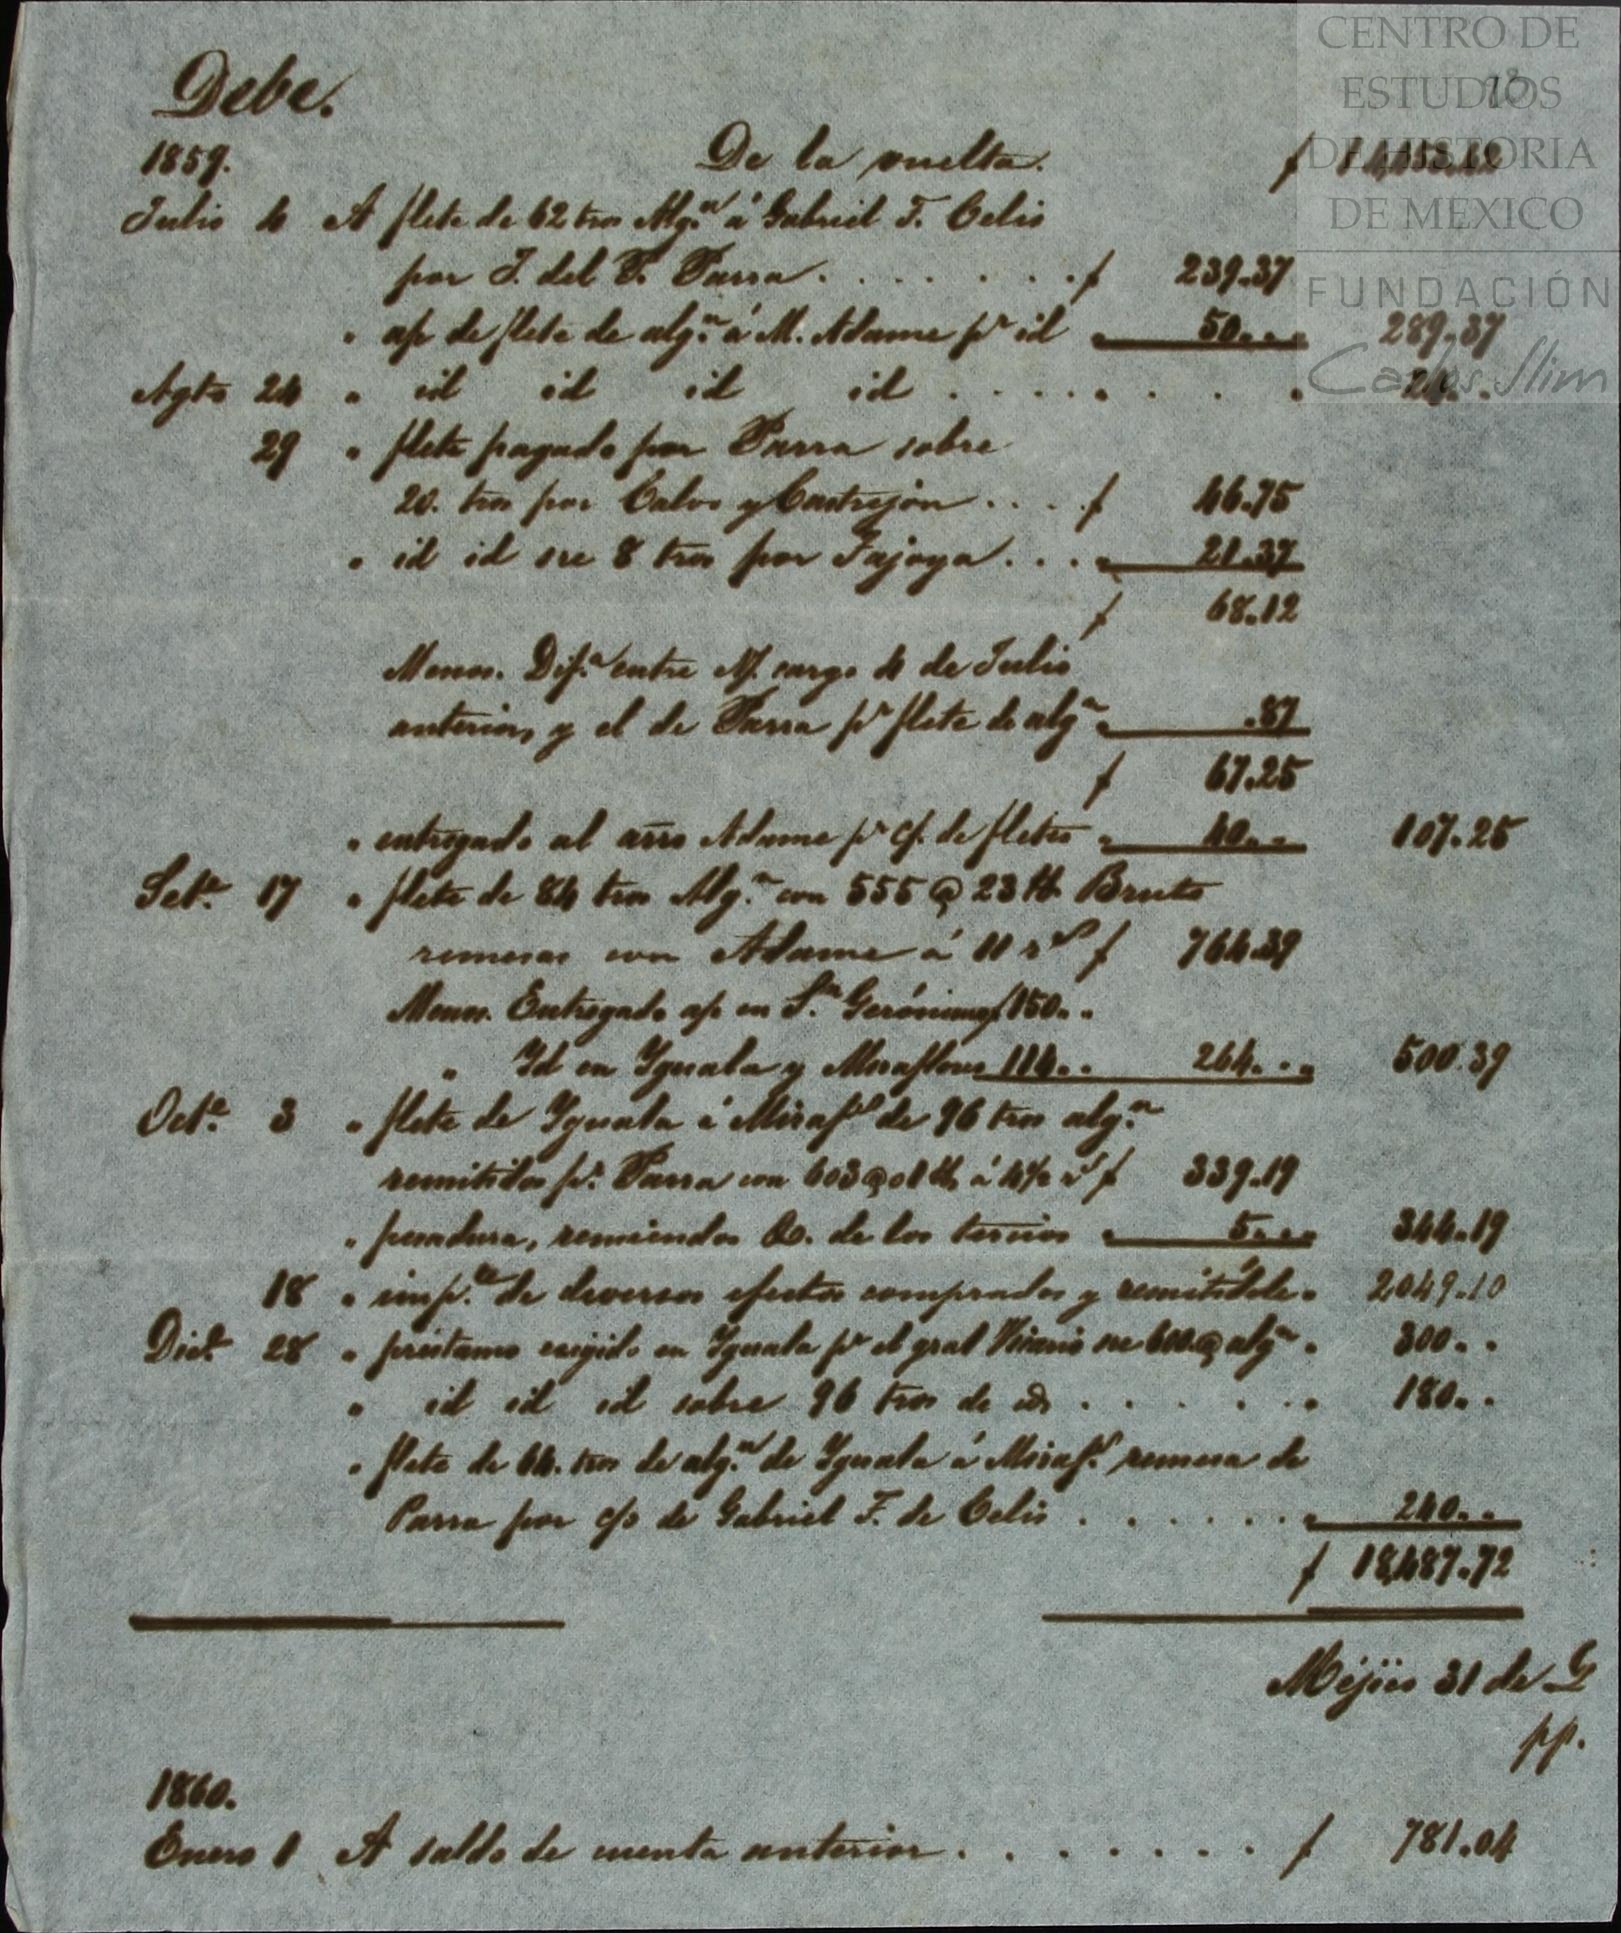 CENTRO DE
ESTUDIOS
DE HISTORIA
DE MEXICO
FUNDACIÓN
Carlos Slim
Debe.
1859. De la vuelta. $ 14,453.42
Julio 4 A flete de 62 tros Alg.n á Gabriel F. Celis
por J. del P. Parra . . . . . . . $ 239.37
" a/c de flete de alg.n á M. Adame pr id " 50. . . 289.37
Agto 24 " id id id id . . . . . . . . " 24. .
29 " flete pagado por Parra sobre
20. tros por Calvo y Castrejon . . . . $ 46.75
" id id sre 8 tros por Jajoya . . . " 21.37
$ 68.12
Menos. Dif.a entre N/. cargo 4 de Julio
anterior, y el de Parra pr flete de algn " .87
$ 67.25
" entregado al arro Adame pr c/. de fletes " 40. . . 107.25
Set.e 17 " flete de 84 tros Alg.n con 555 @ 23 lb Bruto
remesas con Adame á 11 rs $ 764.39
Menos. Entregado a/c en S.n Gerónimo $ 150. .
" Id en Yguala y Miraflores 114. . 264. . . 500.39
Oct.e 3 " flete de Yguala á Miraf.s de 96 tros alg.n
remitidos pr. Parra con 603 @ 01 lb, á 4½ rs $ 339.19
" pesadura, remiendos &. de los tercios " 5. . . 344.19
18 " imp.te de diversos efectos comprados y remitídole " 2,049.10
Dice. 28 " préstamo exijido en Yguala pr el gral Vicario sre 600 @ algn " 300. .
" id id id sobre 96 tros de id, . . . . . . " 180. .
" flete de 64. tros de alg.n de Yguala á Miraf.s remesa de
Parra por c/o de Gabriel F. de Celis . . . . . . " 240. .
$ 18,487.72
Méjico 31 de
pp.
1860.
Enero 1 A saldo de cuenta anterior . . . . . . . $ 781.04